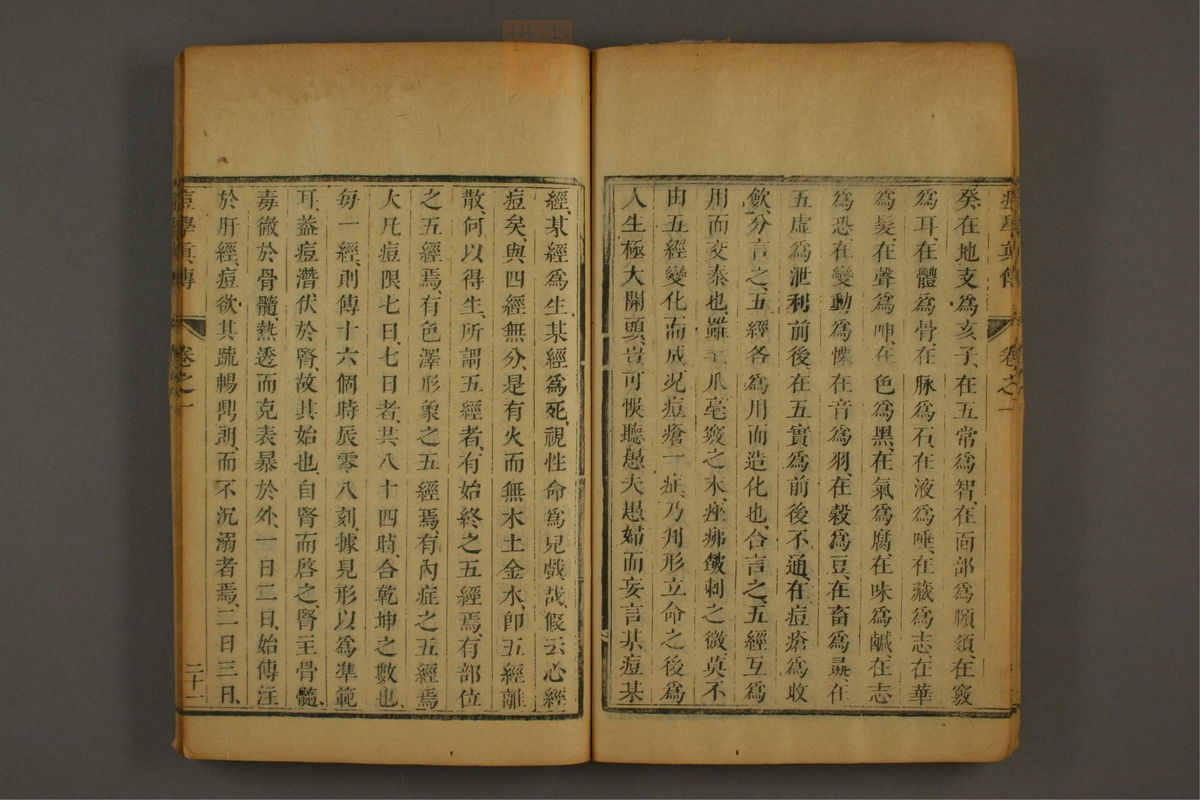 痘學真傳　卷之一
癸、在地支為亥子、在五常為智、在面部為頤頦、在竅
為耳、在體為骨、在脉為石、在液為唾、在藏為志、在華
為髮、在聲為呻、在色為黑、在氣為腐、在味為鹹、在志
為恐、在變動為慄、在音為羽、在穀為豆、在畜為彘、在
五虛為泄利前後、在五實為前後不通、在痘瘡為收
歛、分言之、五經各為用而造化也、合言之、五經互為
用而交泰也、雖工爪毫竅之末、痤疿皶刺之微、莫不
由五經變化而成、况痘瘡一症、乃判形立命之後、為
人生極大開頭、豈可悞聽愚夫愚婦而妄言某痘某
經、某經為生某經為死、視性命為兒戲哉、假云心經
痘矣、與四經無分、是有火而無木土金水、卽五經離
散、何以得生、所謂五經者、有始終之五經焉、有部位
之五經焉、有色澤形象之五經焉、有內症之五經焉
大凡痘限七日、七日者、共八十四時、合乾坤之數也、
每一經、則傳十六個時辰零八刻、據見形以為準範
耳、葢痘潛伏於腎、故其始也、自腎而啓之、腎主骨髓、
毒徹於骨髓、熱透而克表暴於外、一日二日、始傳注
於肝經、痘欲其疏暢鼎剏、而不沉溺者焉、二日三日、
痘學真傳　卷之一　二十一